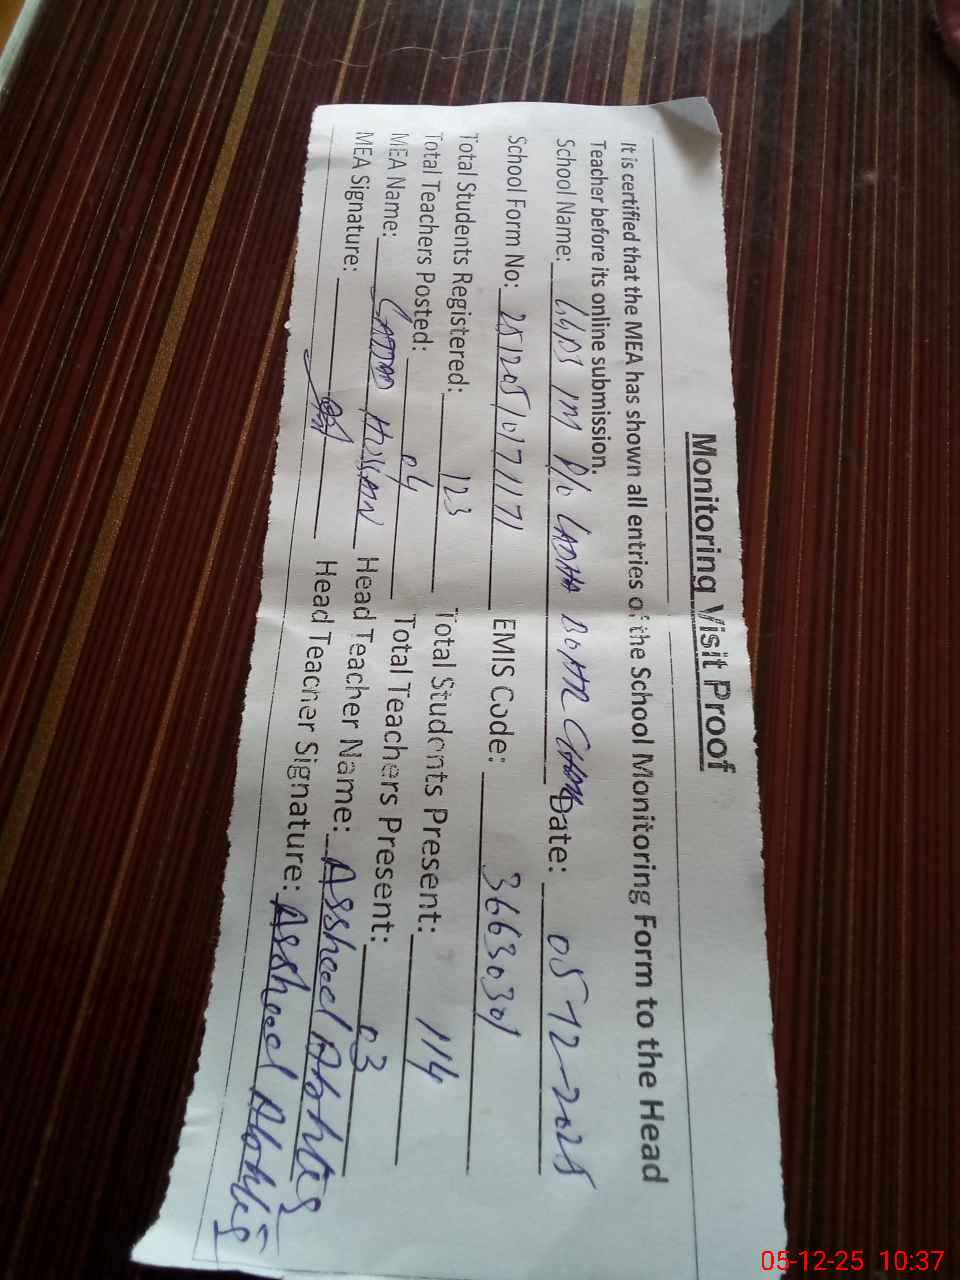 Monitoring Visit Proof
It is certified that the MEA has shown all entries of the School Monitoring Form to the Head
Teacher before its online submission.
School Name: GGPS 1M P/o LADHA BOHAR Date: 05-12-2025
School Form No: EMIS Code: 36630301
Total Students Registered: 123 Total Students Present: 114
Total Teachers Posted: 04 Total Teachers Present: 03
MEA Name: HUSSAIN Head Teacher Name:
MEA Signature: Head Teacher Signature:
05-12-25 10:37